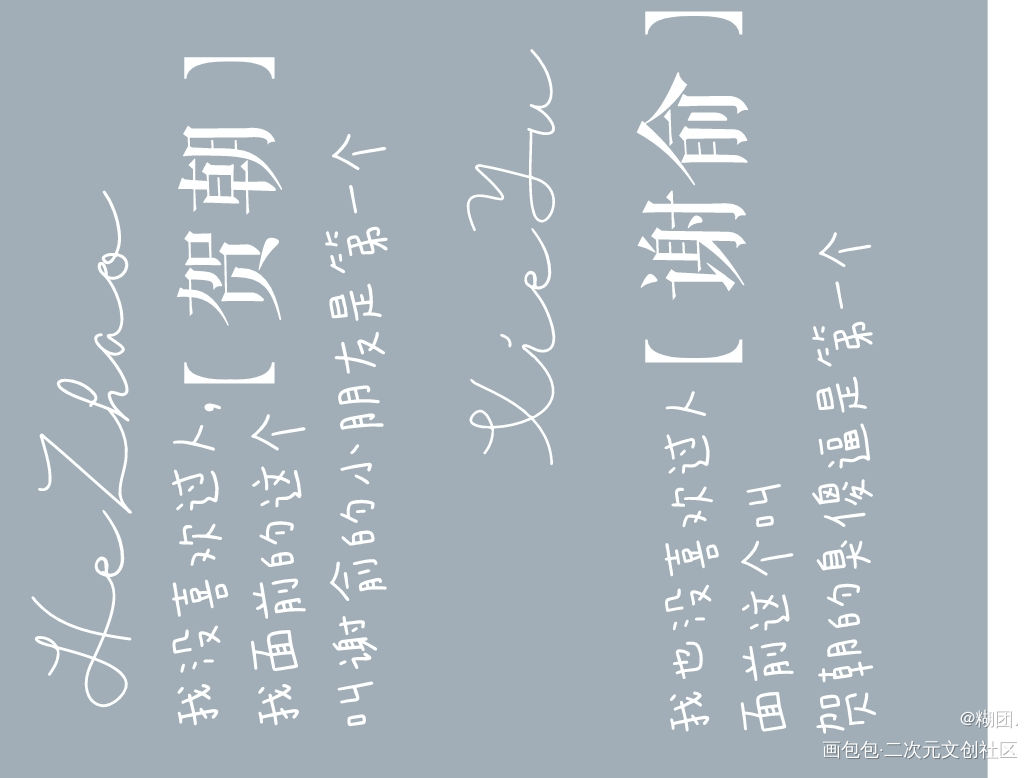 He Zhao
【贺朝】
我没喜欢过人,
我面前的这个
叫谢俞的小朋友是第一个
Xie Yu
【谢俞】
我也没喜欢过人
面前这个叫
贺朝的臭傻逼是第一个
@糊团.
画包包·二次元文创社区